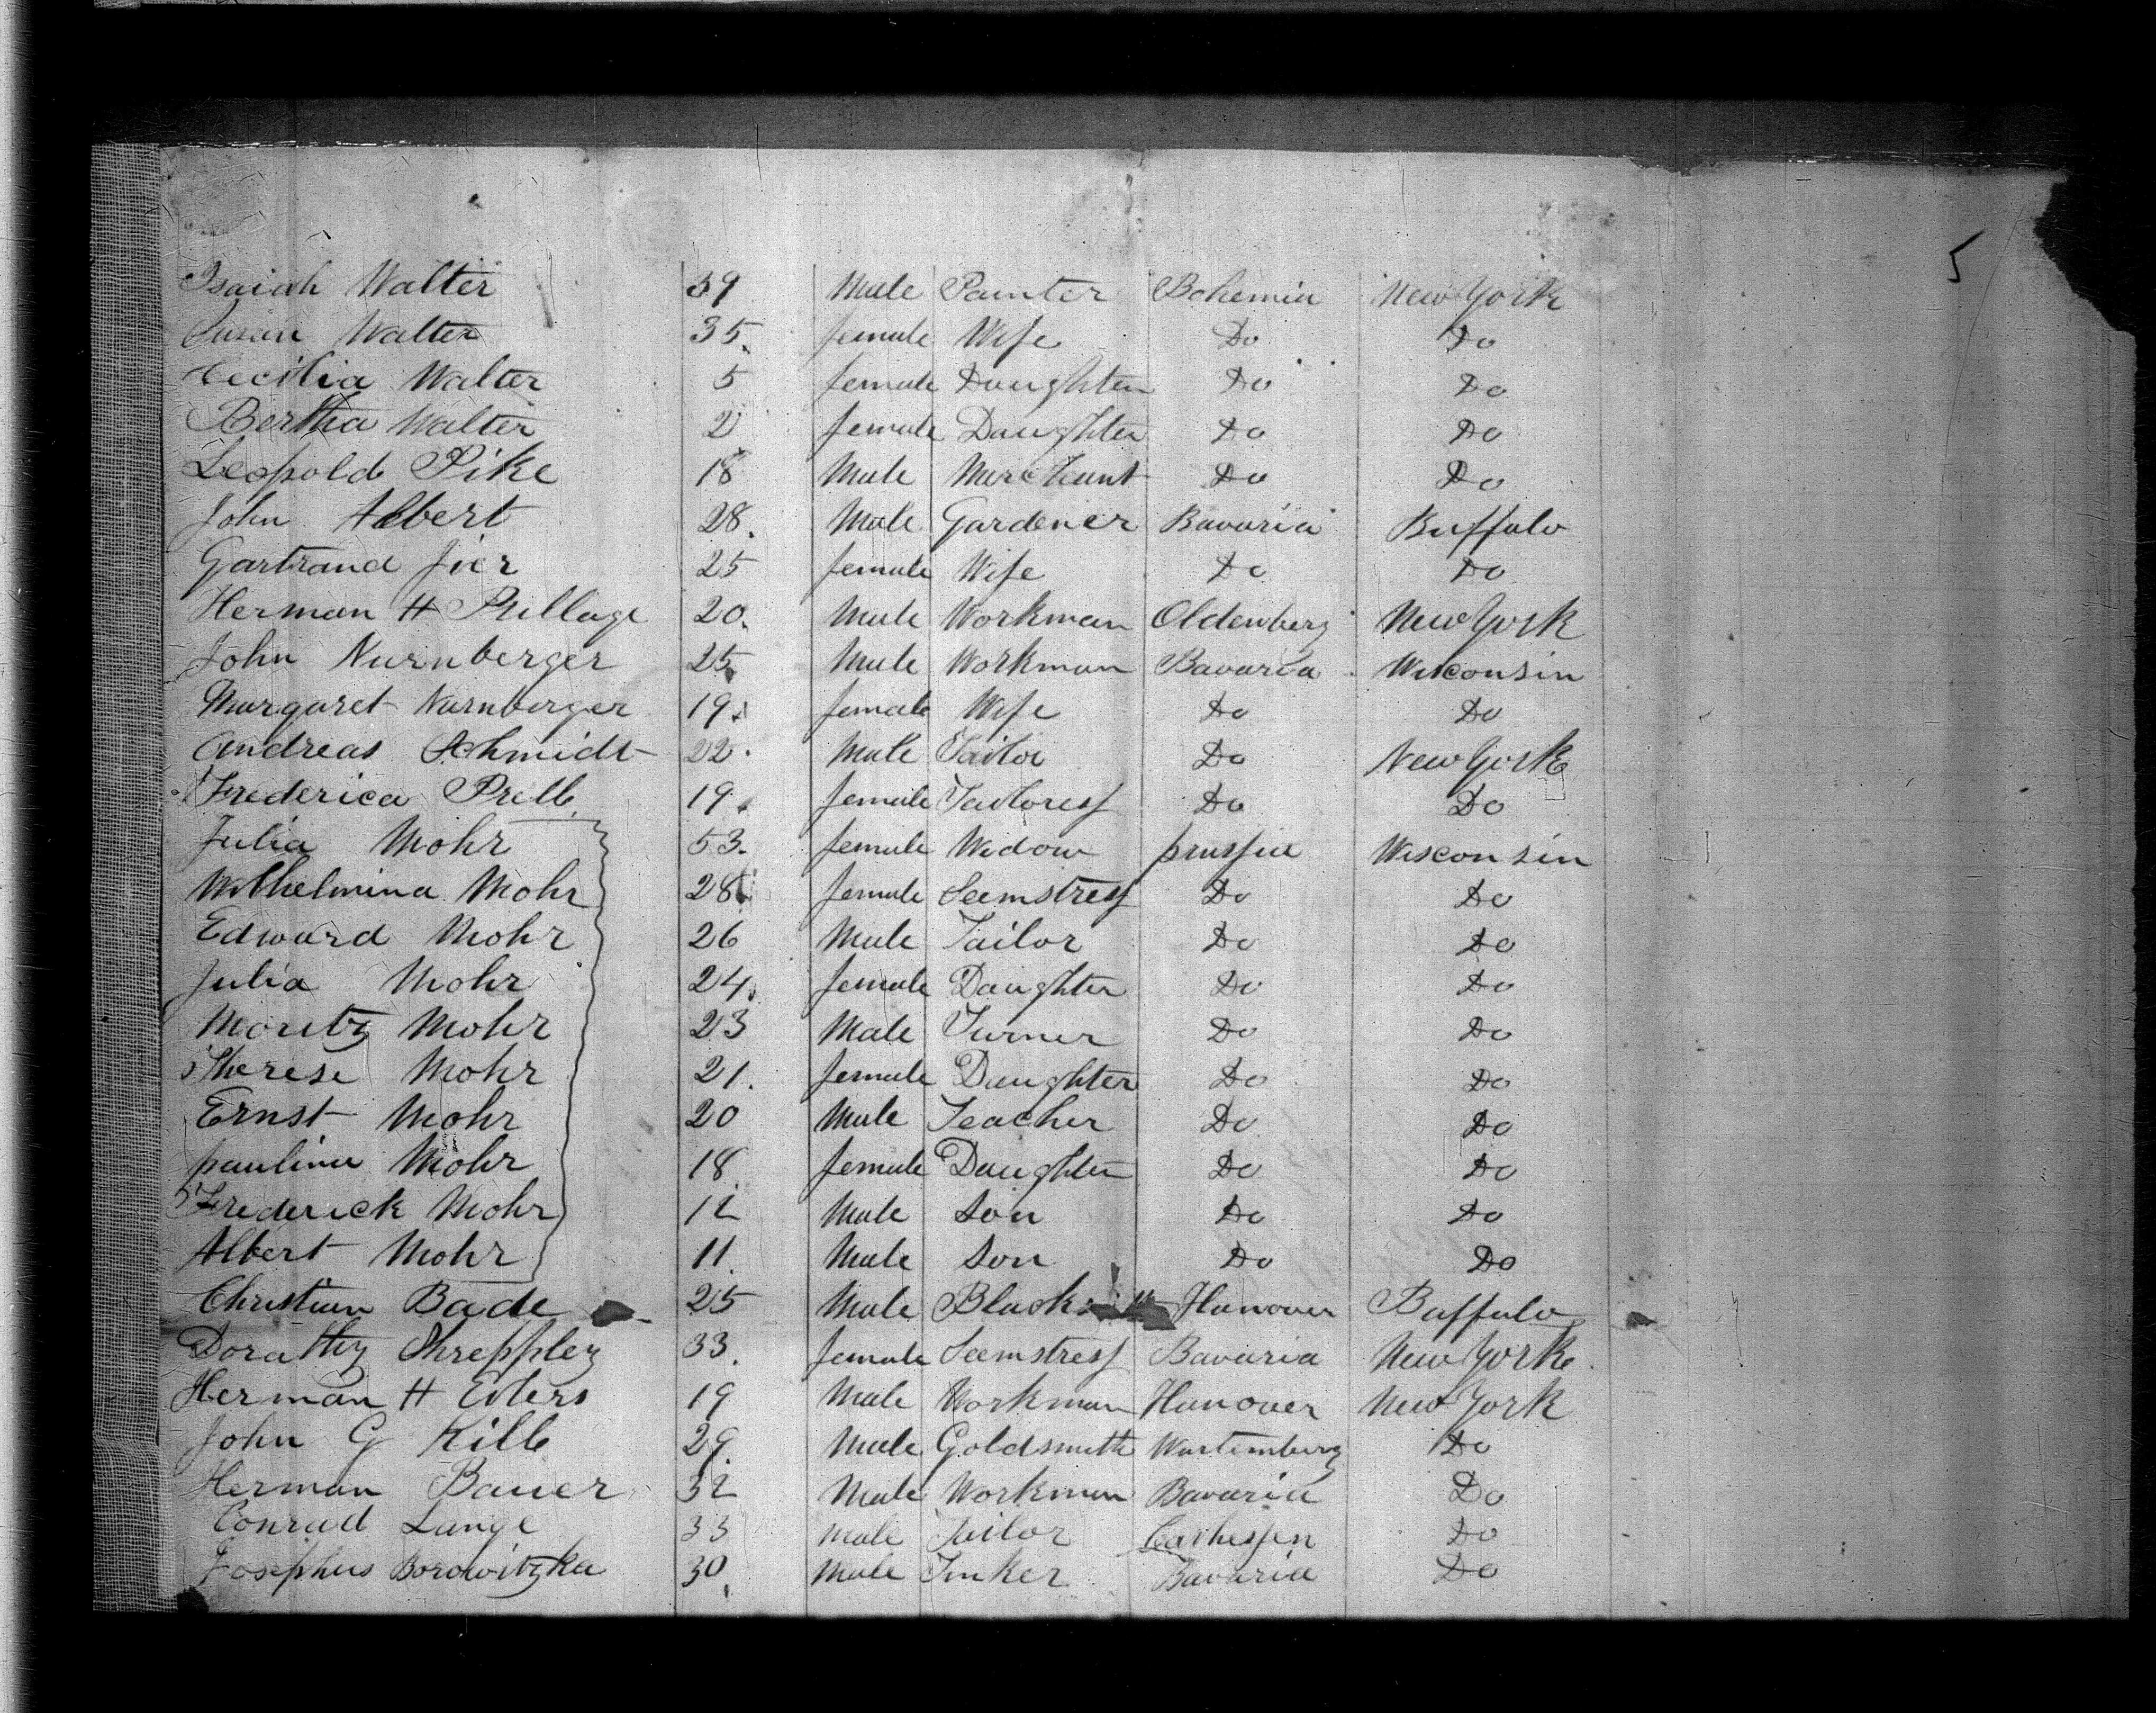 5
Isaiah Walter 39 Male Painter Bohemia New York
Susan Walter 35 female Wife Do Do
Cecilia Walter 5 female Daughter Do Do
Bertha Walter 2 female Daughter Do Do
Leopold Pike 18 Male Merchant Do Do
John Albert 28. Male Gardener Bavaria Buffalo
Gartrand Jier 25 female Wife Do Do
Herman H 20. Male Workman Oldenberg New York
John Nurnberger 25. Male Workman Bavaria Wisconsin
Margaret Nurnberger 19. female Wife Do Do
Andreas Schmidt 22. Male Tailor Do New York
Frederica Prell 19. female Tailoress Do Do
Julia Mohr 53. female Widow prussia Wisconsin
Wilhelmina Mohr 28 female Seemstress Do Do
Edward Mohr 26 Male Tailor Do Do
Julia Mohr 24. female Daughter Do Do
Moritz Mohr 23 Male Turner Do Do
Therese Mohr 21. female Daughter Do Do
Ernst Mohr 20 Male Teacher Do Do
paulina Mohr 18 female Daughter Do Do
Frederick Mohr 12 Male Son Do Do
Albert Mohr 11. Male Son Do Do
Christian Bade 25 Male Hanover Buffalo
Dorathy Shreppley 33. female Seemstress Bavaria New York.
Herman H Evers 19 Male Workman Hanover New York
John G Kille 29. Male Goldsmith Wurtemburg Do
Herman Bauer 32 Male Workman Bavaria Do
Conrad Lange 33 male Tailor Do
Josephus Borowitzka 30. Male Tinker Bavaria Do